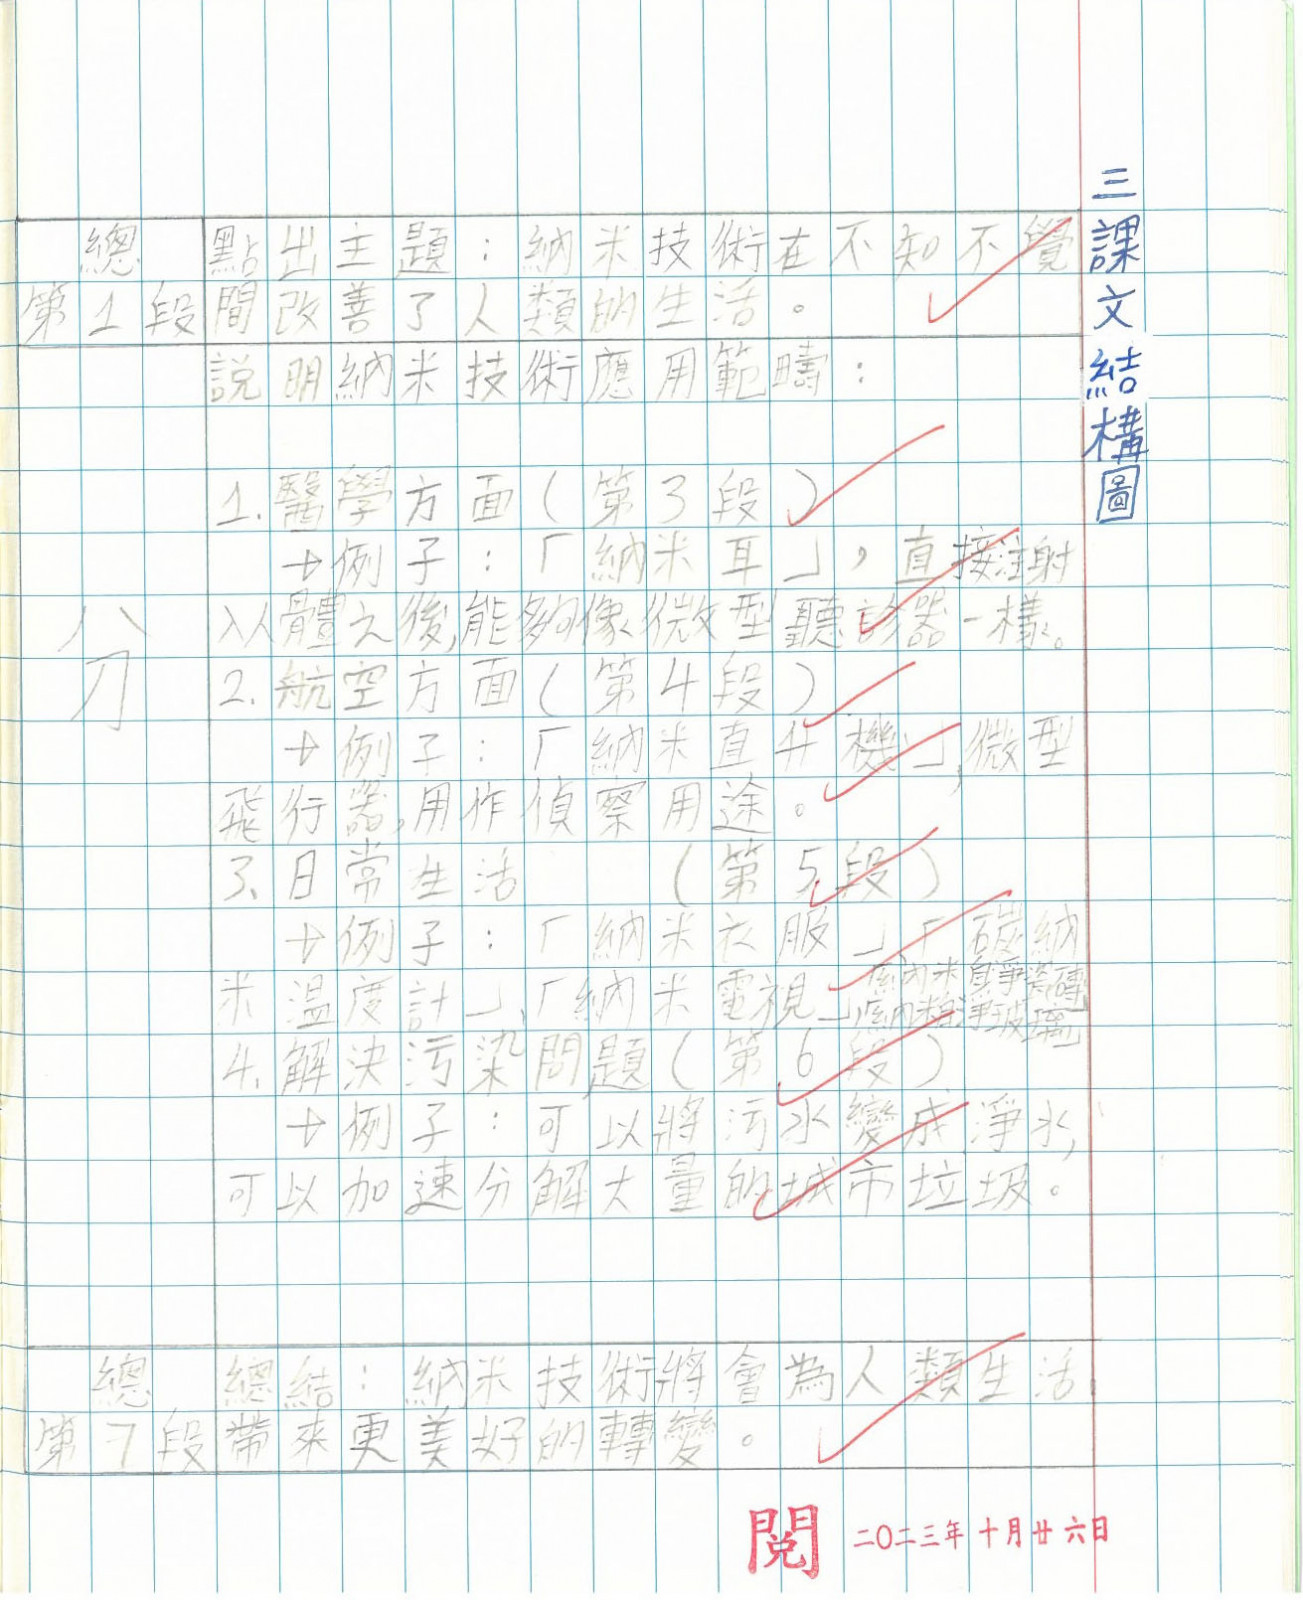 三課文結構圖
總
第1段
點出主題：納米技術在不知不覺
間改善了人類的生活。
分
說明納米技術應用範疇：
1.醫學方面(第3段)
→例子：「納米耳」，直接注射
入人體之後，能夠像微型聽診器一樣。
2.航空方面(第4段)
→例子：「納米直升機」，微型
飛行器，用作偵察用途。
3.日常生活(第5段)
→例子：「納米衣服」「碳納
米溫度計」、「納米電視」、「納米自淨瓷磚」
「納米自淨玻璃」
4.解決污染問題(第6段)
→例子：可以將污水變成淨水，
可以加速分解大量的城市垃圾。
總
第7段
總結：納米技術將會為人類生活
帶來更美好的轉變。
閱 二〇二三年十月廿六日